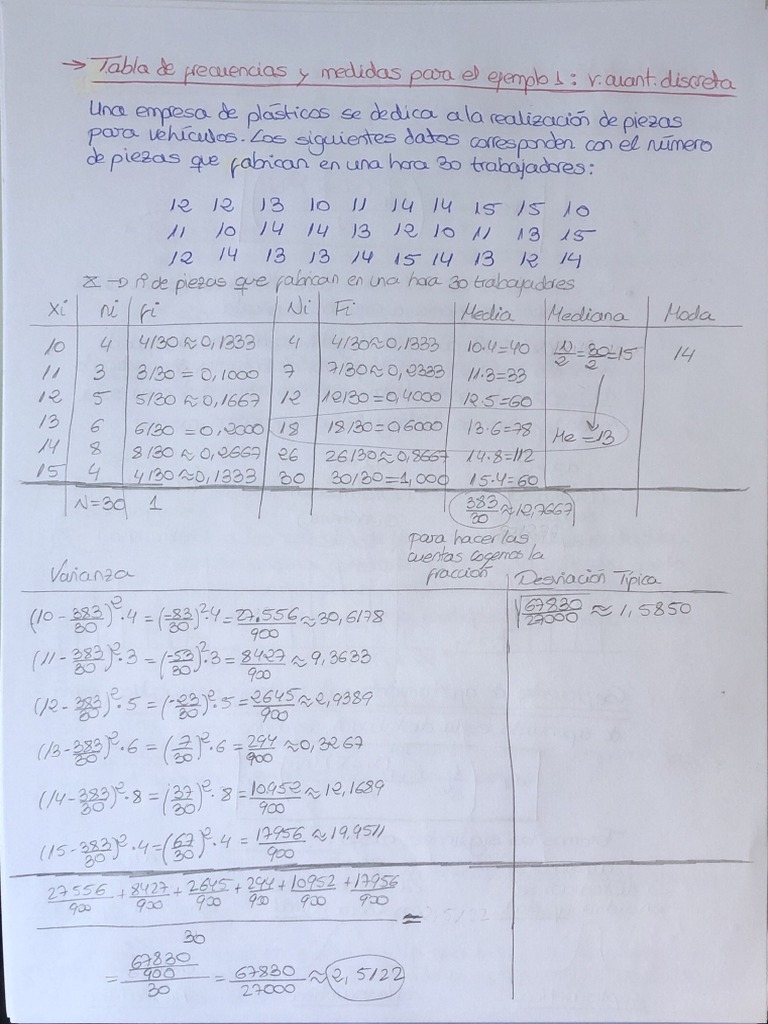 → Tabla de frecuencias y medidas para el ejemplo 1: v. cuant. discreta
Una empresa de plásticos se dedica a la realización de piezas
para vehículos. Los siguientes datos corresponden con el número
de piezas que fabrican en una hora 30 trabajadores:
12 12 13 10 11 14 14 15 15 10
11 10 14 14 13 12 10 11 13 15
12 14 13 13 14 15 14 13 12 14
X → nº de piezas que fabrican en una hora 30 trabajadores
xi ni fi Ni Fi Media Mediana Moda
10 4 4/30 ≈ 0,1333 4 4/30 ≈ 0,1333 10·4=40 N/2 = 30/2 = 15 14
11 3 3/30 = 0,1000 7 7/30 ≈ 0,2333 11·3=33
12 5 5/30 ≈ 0,1667 12 12/30 = 0,4000 12·5=60
13 6 6/30 = 0,2000 18 18/30 = 0,6000 13·6=78 Me = 13
14 8 8/30 ≈ 0,2667 26 26/30 ≈ 0,8667 14·8=112
15 4 4/30 ≈ 0,1333 30 30/30 = 1,000 15·4=60
N=30 1 383/30 ≈ 12,7667
para hacer las
cuentas cogemos la
fracción
Varianza Desviación Típica
(10 - 383/30)²·4 = (-83/30)²·4 = 27.556/900 ≈ 30,6178 √(67830/27000) ≈ 1,5850
(11 - 383/30)²·3 = (-53/30)²·3 = 8427/900 ≈ 9,3633
(12 - 383/30)²·5 = (-23/30)²·5 = 2645/900 ≈ 2,9389
(13 - 383/30)²·6 = (7/30)²·6 = 294/900 ≈ 0,3267
(14 - 383/30)²·8 = (37/30)²·8 = 10952/900 ≈ 12,1689
(15 - 383/30)²·4 = (67/30)²·4 = 17956/900 ≈ 19,9511
27556/900 + 8427/900 + 2645/900 + 294/900 + 10952/900 + 17956/900 =
30
= 67830/900 / 30 = 67830/27000 ≈ 2,5122